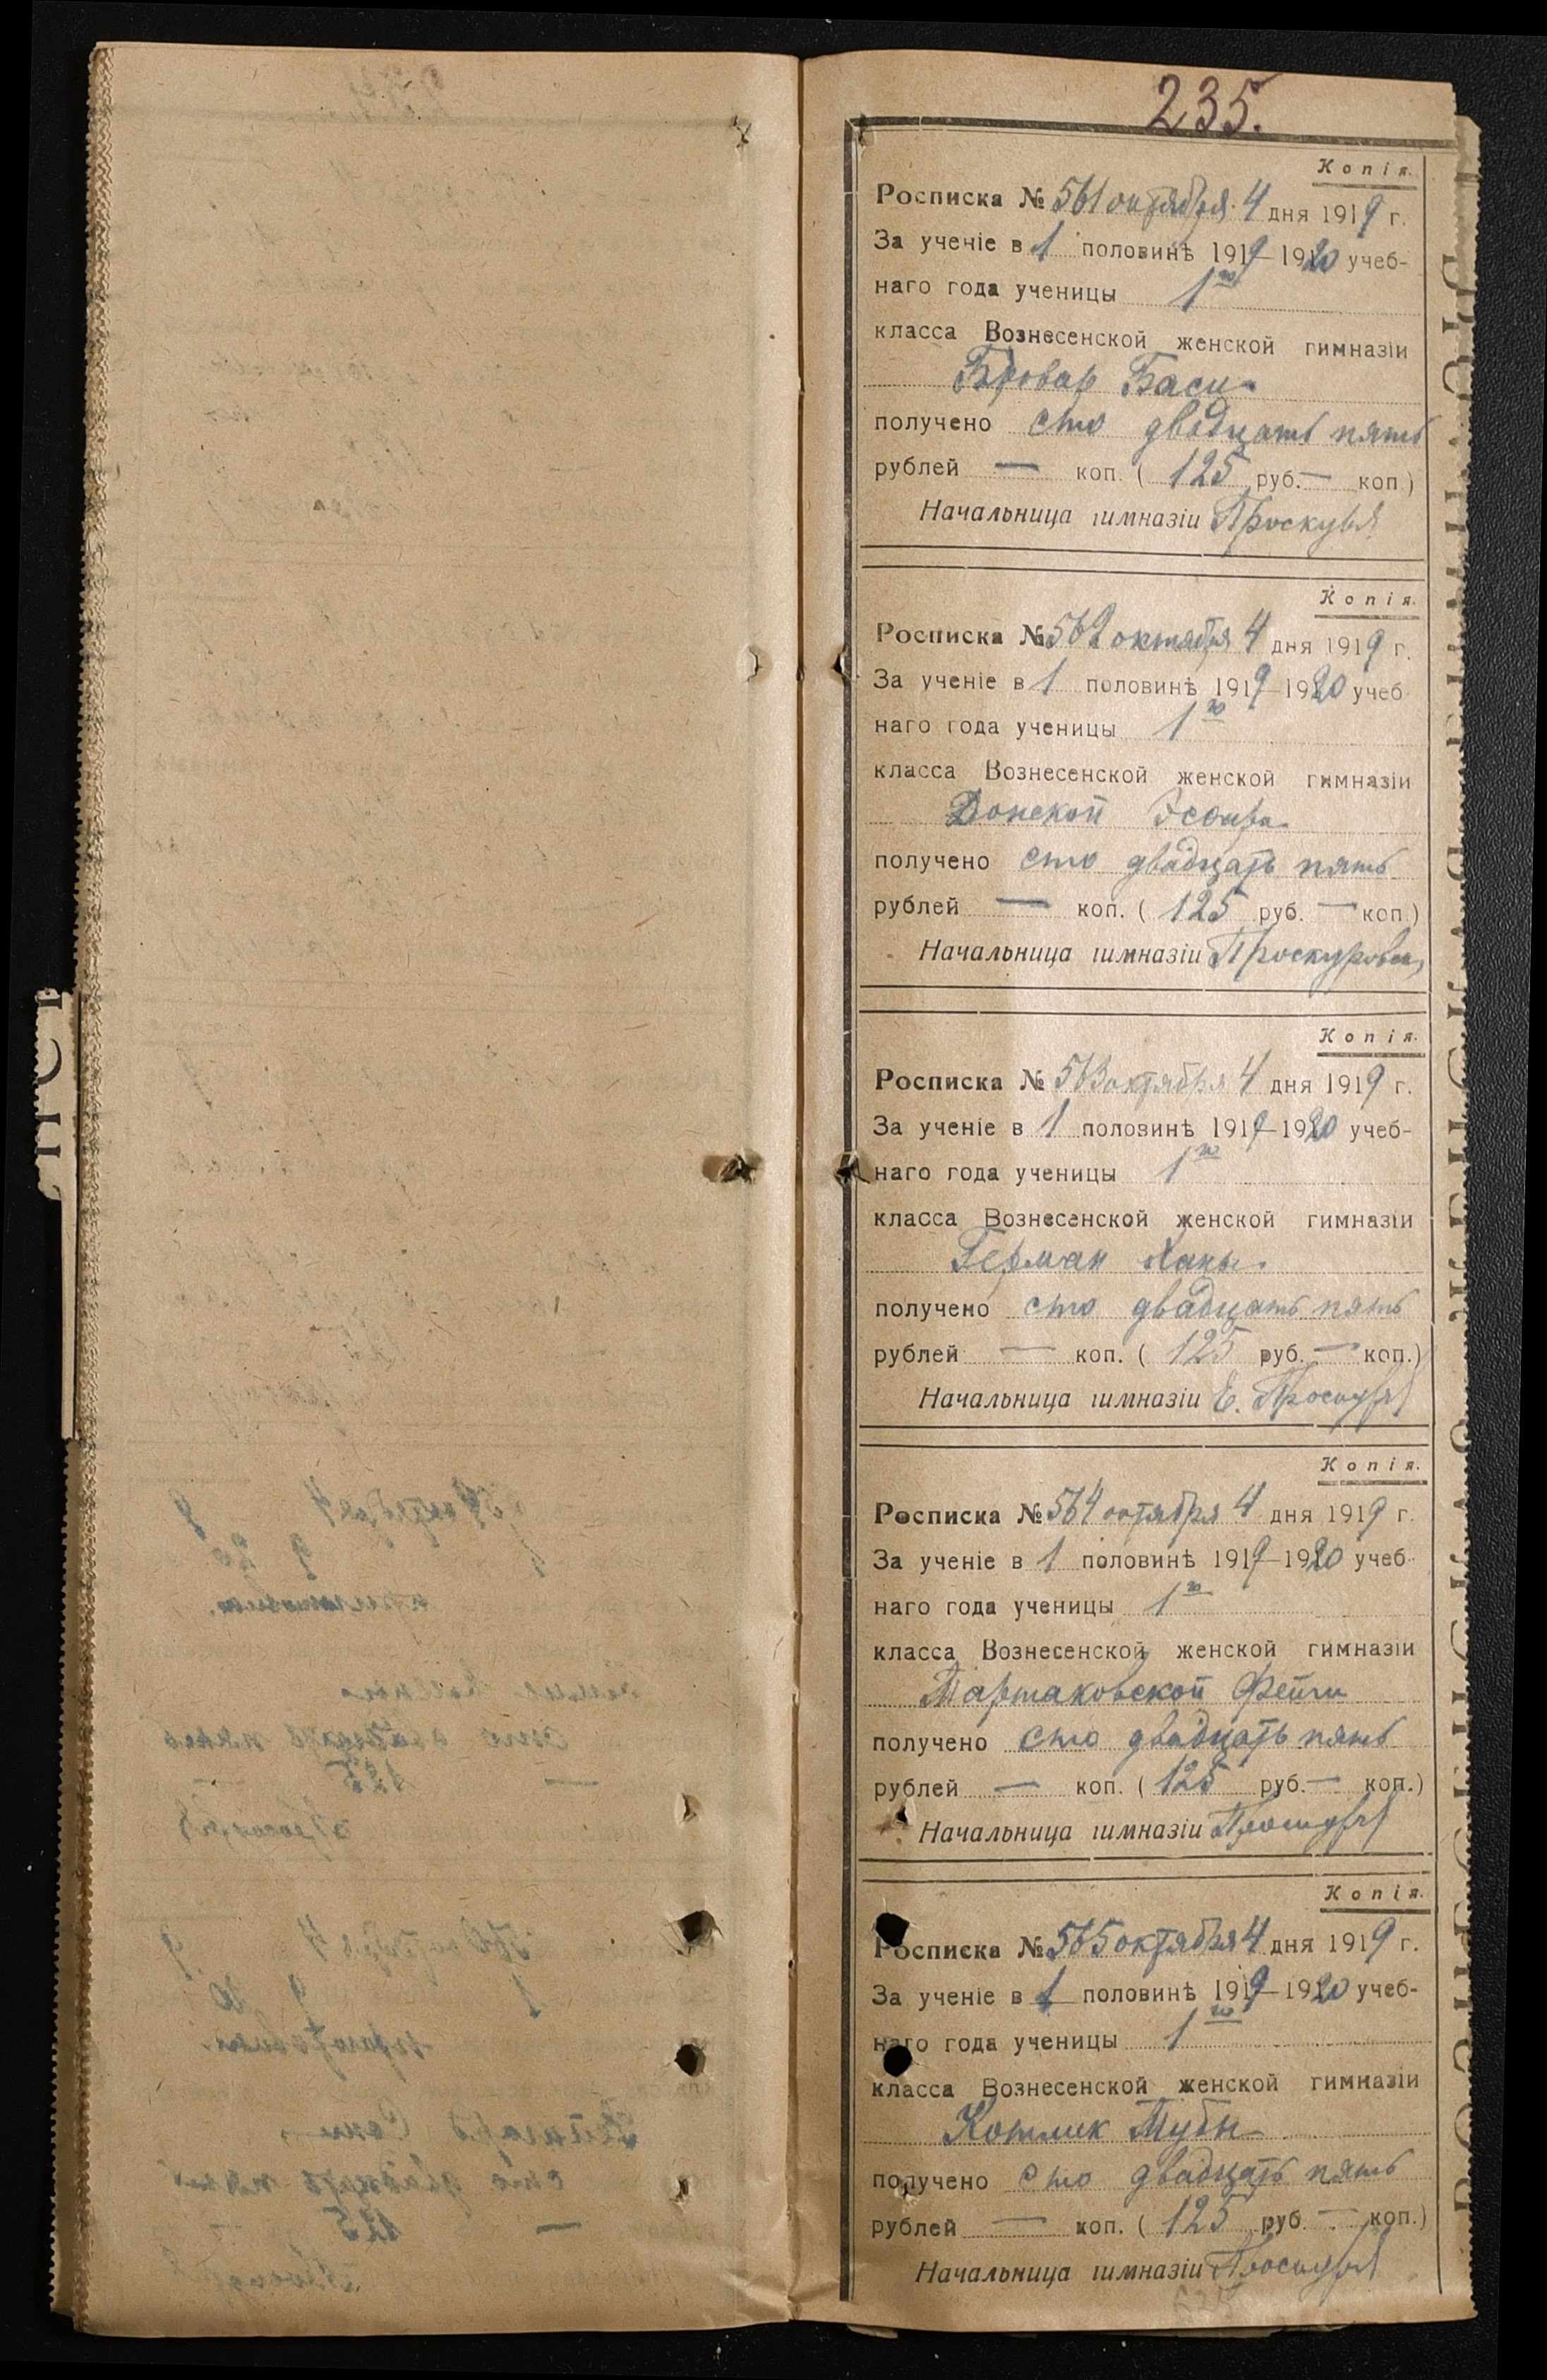 235.
Копія.
Росписка № 561 октября 4 дня 1919 г.
За ученіе в 1 половинѣ 1919–1920 учеб-
наго года ученицы 1го
класса Вознесенской женской гимназіи
Бровар Баси
получено сто двадцать пять
рублей — коп. (125 руб. — коп.)
Начальница гимназіи
Копія.
Росписка № 562 октября 4 дня 1919 г.
За ученіе в 1 половинѣ 1919–1920 учеб
наго года ученицы 1го
класса Вознесенской женской гимназіи
Донской
получено сто двадцать пять
рублей — коп. (125 руб. — коп.)
Начальница гимназіи
Копія.
Росписка № 563 октября 4 дня 1919 г.
За ученіе в 1 половинѣ 1919–1920 учеб-
наго года ученицы 1го
класса Вознесенской женской гимназіи
Герман Ханы
получено сто двадцать пять
рублей — коп. (125 руб. — коп.)
Начальница гимназіи Е.
Копія.
Росписка № 564 октября 4 дня 1919 г.
За ученіе в 1 половинѣ 1919–1920 учеб-
наго года ученицы 1го
класса Вознесенской женской гимназіи
Тартаковской Фейги
получено сто двадцать пять
рублей — коп. (125 руб. — коп.)
Начальница гимназіи
Копія.
Росписка № 565 октября 4 дня 1919 г.
За ученіе в 1 половинѣ 1919–1920 учеб-
наго года ученицы 1го
класса Вознесенской женской гимназіи
Котлик Тубы
получено сто двадцать пять
рублей — коп. (125 руб. — коп.)
Начальница гимназіи